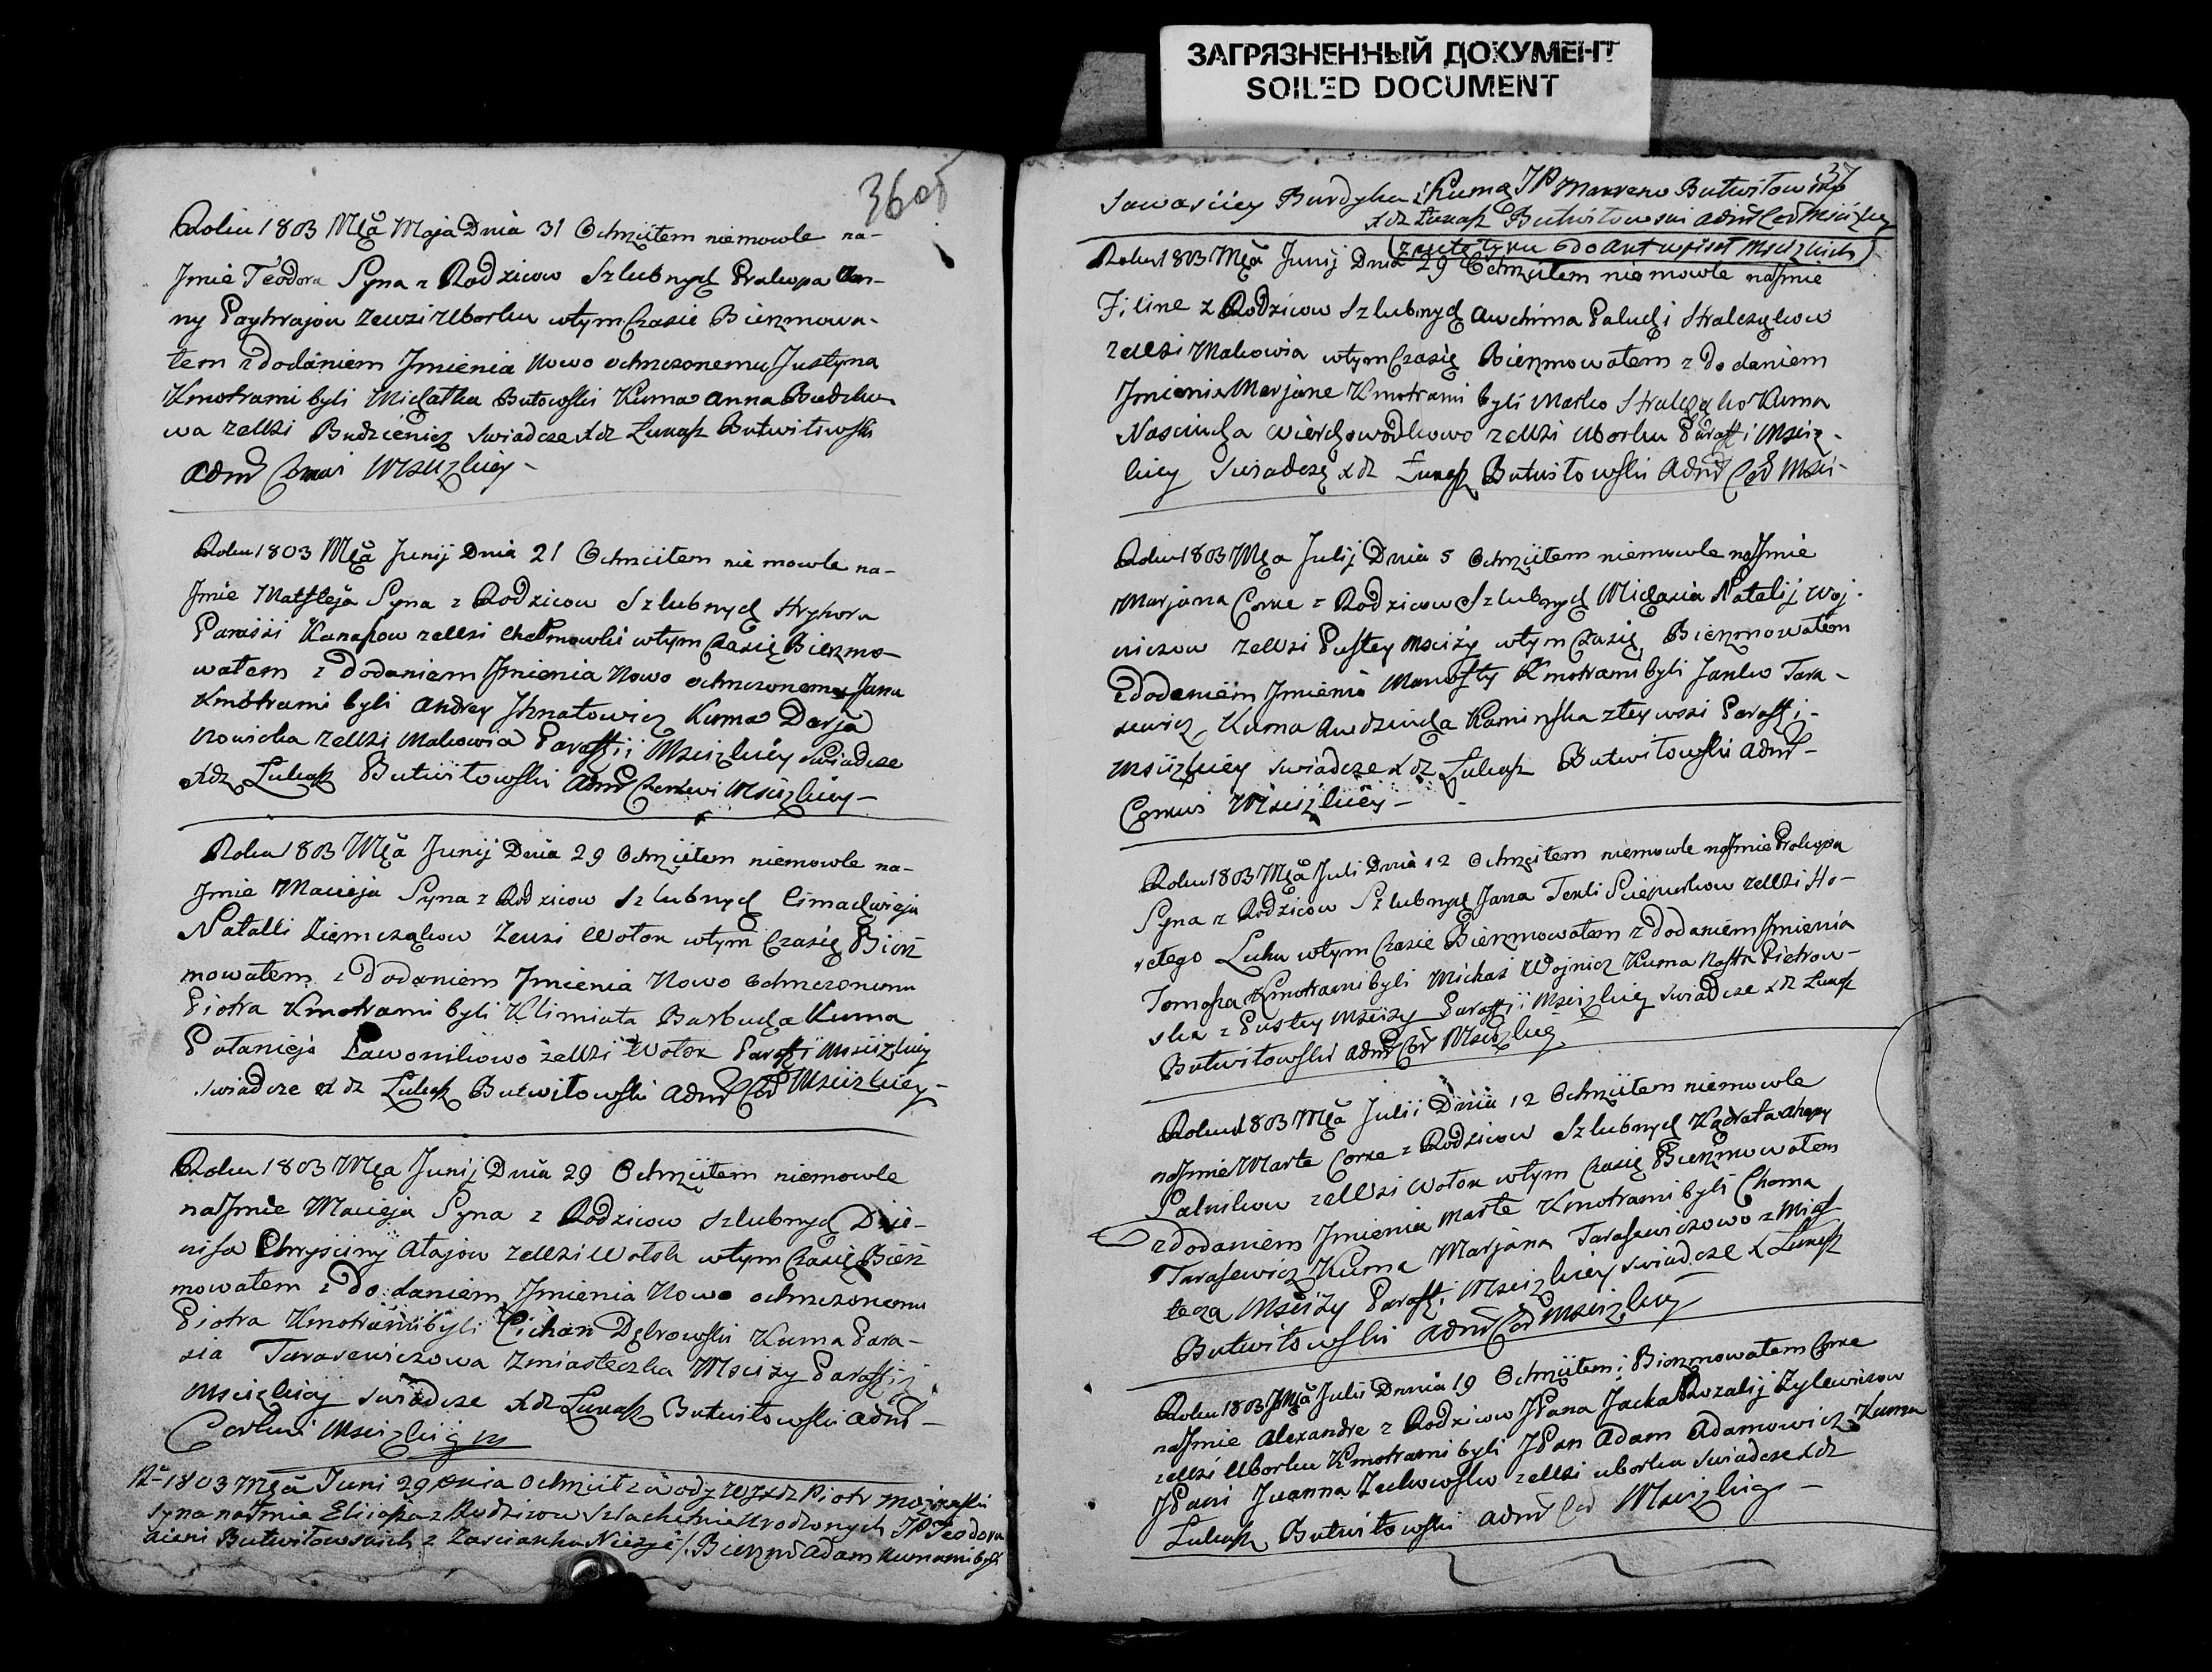 ЗАГРЯЗНЕННЫЙ ДОКУМЕНТ
SOILED DOCUMENT
36 об
Roku 1803 Mca Maja Dnia 31 Ochrzciłem niemowle na-
Jmie Teodora Syna z Rodzicow Szlubnych Prakopa An-
ny zewzi Uborku wtym Czasie Bierzmowa-
łem z dodaniem Jmienia Nowo ochrzczonemu Justyna
Kmotrami byli Michałka Butowski Kuma Anna
wa zewsi Budzienicz Swiadcze xdz Łukasz Butwiłowski
Adm Cerkwi Mscizkiey
Roku 1803 Mca Junij Dnia 21 Ochrzciłem nie mowle na-
Jmie Matfieja Syna z Rodzicow Szlubnych Hryhora
Parasii zewsi wtym Czasie Bierzmo-
wałem z Dodaniem Jmienia Nowo ochrzczonemu Jana
Kmotrami byli Andrey Ihnatowicz Kuma Darja
Nowicka zewsi Makowia Paraffii Mscizkiey Swiadcze
xdz Łukasz Butwiłowski Adm Cerkwi Mscizkiey
Roku 1803 Mca Junij Dnia 29 Ochrzciłem niemowle na-
Jmie Macieja Syna z Rodzicow Szlubnych
Natalli Ziemczakow Zewsi Wołok wtym Czasie Bierz
mowałem z Dodaniem Jmienia Nowo ochrzczonemu
Piotra Kmotrami byli Klimiata Barbucha Kuma
Ławonikowo zewsi Wołok Paraffii Mscizkiey
Swiadcze xdz Łukasz Butwiłowski Adm Cer Mscizkiey
Roku 1803 Mca Junij Dnia 29 Ochrzciłem niemowle
na Jmie Macieja Syna z Rodzicow Szlubnych Dzie-
nisa Chryściny Atajow zewsi Wołok wtym Czasie Bierz
mowałem z Dodaniem Jmienia Nowo ochrzczonemu
Piotra Kmotrami byli Cichan Dąbrowski Kuma Para-
sia Tarasewiczowa z miasteczka Mscizy Paraffij
Mscizkiey Swiadcze xdz Łukasz Butwiłowski Adm
Cerkwi Mscizkiey
1803 Mca Juni 29 dnia Ochrzcił z wody xdz Piotr
Syna na Jmie z Rodzicow Szlachetnie Urodzonych JP Teodora
Butwiłowskich z Zascianku Bierzm Adam Kumami byli
37
Burdyka i Kuma JP Butwiłowska
xdz Łukasz Butwiłowski Adm Cer Mscizkiey
Roku 1803 Mca Junij Dnia 29 Ochrzciłem niemowle na Jmie
Filine z Rodzicow Szlubnych Awchima Paluchi Stralczykow
zewsi Makowia wtym Czasie Bierzmowałem z Dodaniem
Jmienia Marjane Kmotrami byli Marko Kuma
Nasciucha Wierchowodkowo zewsi Uborku Paraffi Msciz-
kiey Swiadcze xdz Łukasz Butwiłowski Adm Cer Msci-
Roku 1803 Mca Julij Dnia 5 Ochrzciłem niemowle na Jmie
Marjana Corke z Rodzicow Szlubnych Michasia Natalij Woj-
niczow zewsi Pustey Mscizy wtym Czasie Bierzmowałem
z dodaniem Jmienia Kmotrami byli Janko Tara-
sewicz Kuma Awdziucha Kaminska z tey wsi Paraffi
Mscizkiey Swiadcze xdz Łukasz Butwiłowski Adm
Cerkwi Mscizkiey
Roku 1803 Mca Juli Dnia 12 Ochrzciłem niemowle na Jmie Prakopa
Syna z Rodzicow Szlubnych Jana Tekli zewsi Ho-
rełego Łuhu wtym Czasie Bierzmowałem z Dodaniem Jmienia
Tomasza Kmotrami byli Michaś Wojnicz Kuma Nasta Pietrow-
ska z Pustey Mscizy Paraffii Mscizkiey Swiadcze xdz Łukasz
Butwiłowski Adm Cer Mscizkiey
Roku 1803 Mca Julii Dnia 12 Ochrzciłem niemowle
na Jmie Marte Corke z Rodzicow Szlubnych Kądrata Ahapy
zewsi Wołok wtym Czasie Bierzmowałem
z Dodaniem Jmienia Marte Kmotrami byli Choma
Tarasewicz Kuma Marjana Tarasewiczowo z Mias-
teczka Mscizy Paraffi Mscizkiey Swiadcze x Łukasz
Butwiłowski Adm Cer Mscizkiey
Roku 1803 Mca Julii Dnia 19 Ochrzciłem i Bierzmowałem Corke
na Jmie Alexandre z Rodzicow JPana Jacka Rozalij Zylewiczow
zewsi Uborku Kmotrami byli JPan Adam Adamowicz Kuma
JPani Juanna zewsi Uborku Swiadcze xdz
Łukasz Butwiłowski Adm Cer Mscizkiey